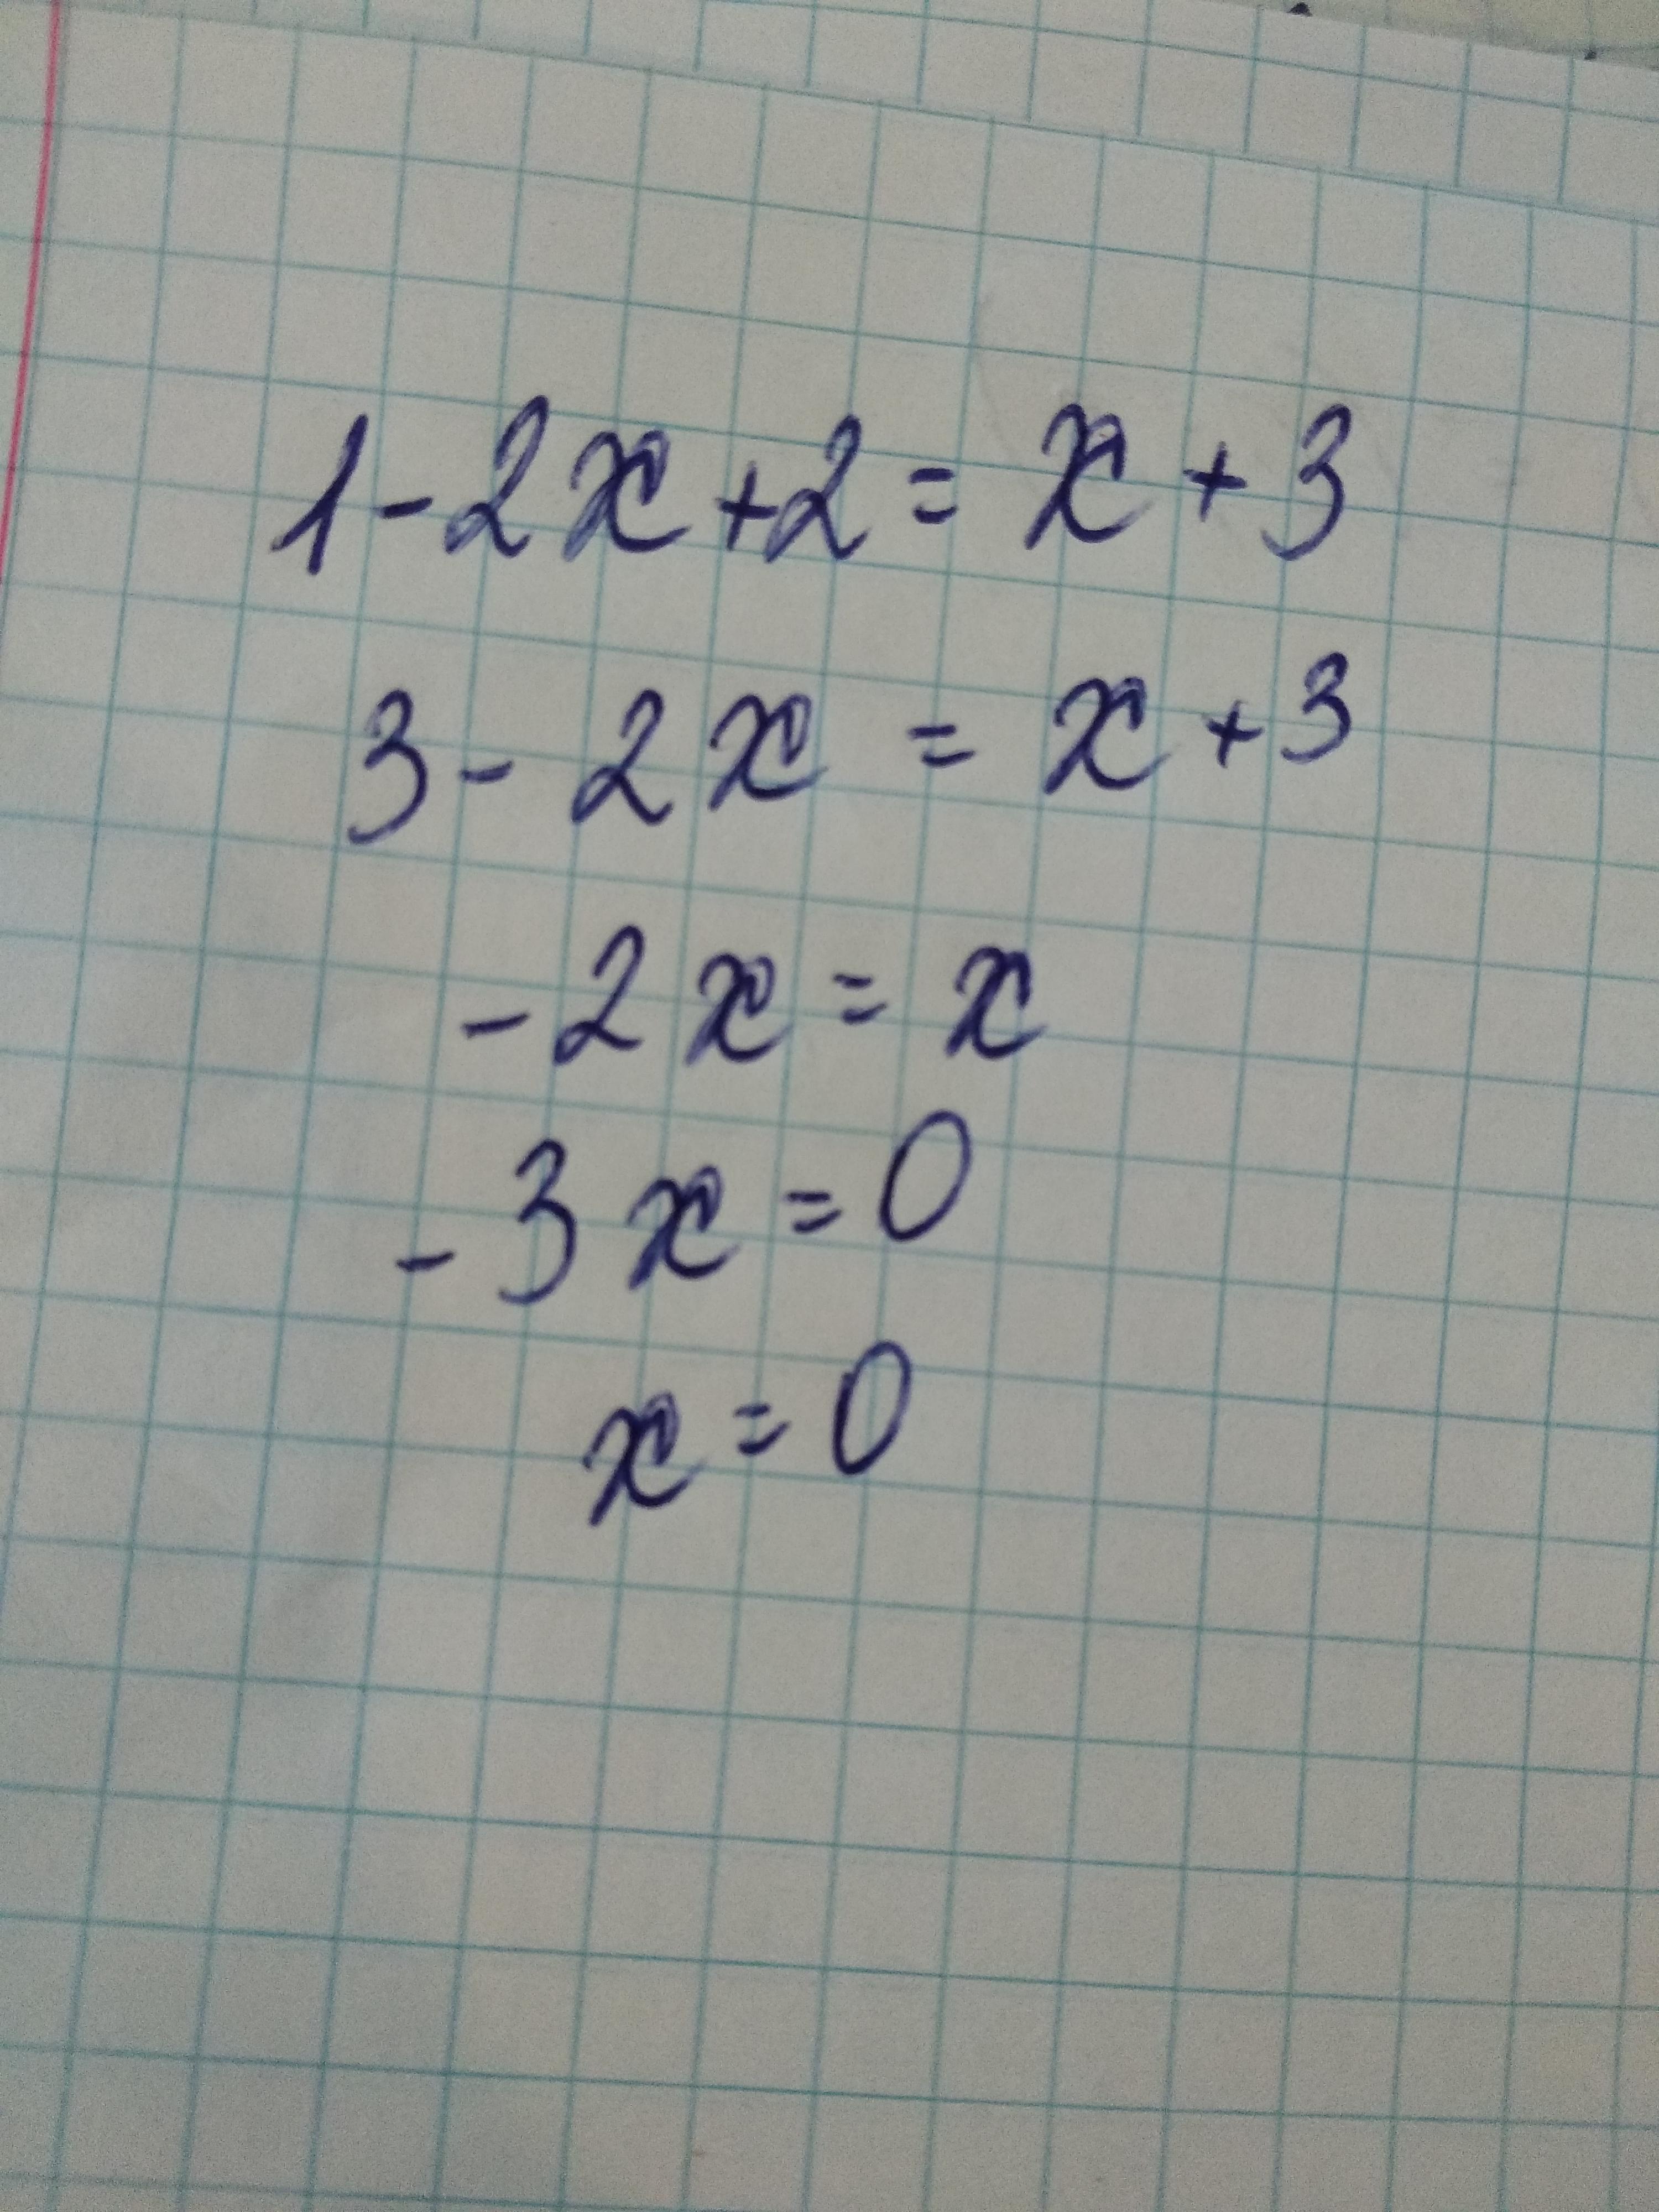 1-2x+2=x+3
3-2x=x+3
-2x=x
-3x=0
x=0